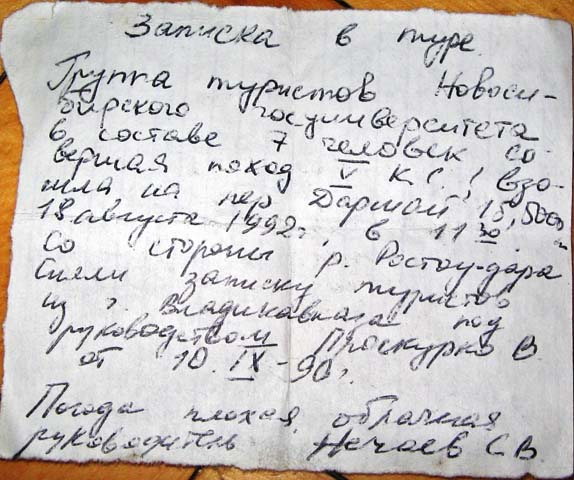 Записка в туре.
Группа туристов Новоси-
бирского госуниверситета
в составе 7 человек со-
вершая поход V к.с., взо-
шла на пер
18 августа 1992г, в 11 30
со стороны р. Ростоу-дара
Сняли записку туристов
из г. Владикавказа под
руководством Проскурко В.
от 10. IX - 90г.
Погода плохая, облачная
руководитель Нечаев С.В.